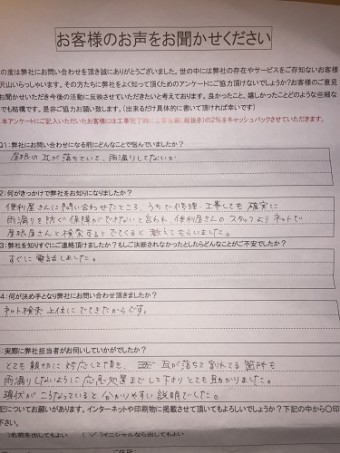 お客様のお声をお聞かせください
の度は弊社にお問い合わせを頂き誠にありがとうございました。世の中には弊社の存在やサービスをご存知ないお客様
沢山いらっしゃいます。その方たちに弊社をよく知って頂くためのアンケートにご協力頂けないでしょうか?お客様のご意見
お聞かせいただき今後の活動に反映させていただきたいと考えております。良かったこと、嬉しかったことどのような些細な
でも結構です。是非ご協力お願い致します。(出来るだけ具体的に書いて頂ければ幸いです)
本アンケートにご記入いただいたお客様には工事完了時に 税抜き)の2%をキャッシュバックさせていただきます。
Q1:弊社にお問い合わせになる前にどんなことで悩んでいましたか?
屋根の瓦が落ちていて、雨漏りしてないか
2:何がきっかけで弊社をお知りになりましたか?
便利屋さんに問い合わせたところ、うちで修理、工事しても確実に
雨漏りを防ぐ保障ができないと言われ、便利屋さんのスタッフよりネットで
屋根屋さんと検索するとでてくると教えてもらいました。
3:弊社を知りすぐにご連絡頂けましたか?もしご決断されなかったとしたらどんなことがご不安でしたか?
すぐに電話しました。
4:何が決め手となり弊社にお問い合わせ頂きましたか?
ネット検索上位にでてきたからです。
:実際に弊社担当者がお伺いしていかがでしたか?
とても親切に対応して頂き、瓦が落ちて割れてる箇所も
雨漏りしないように応急処置までして下さりとても助かりました。
現状がこうなっていると分かりやすい説明でした。
記についてお願いがあります。インターネットや印刷物に掲載させて頂いてもよろしいでしょうか?下記の中から○印
下さい。
)名前を出してもよい (✓)イニシャルなら出してもよい